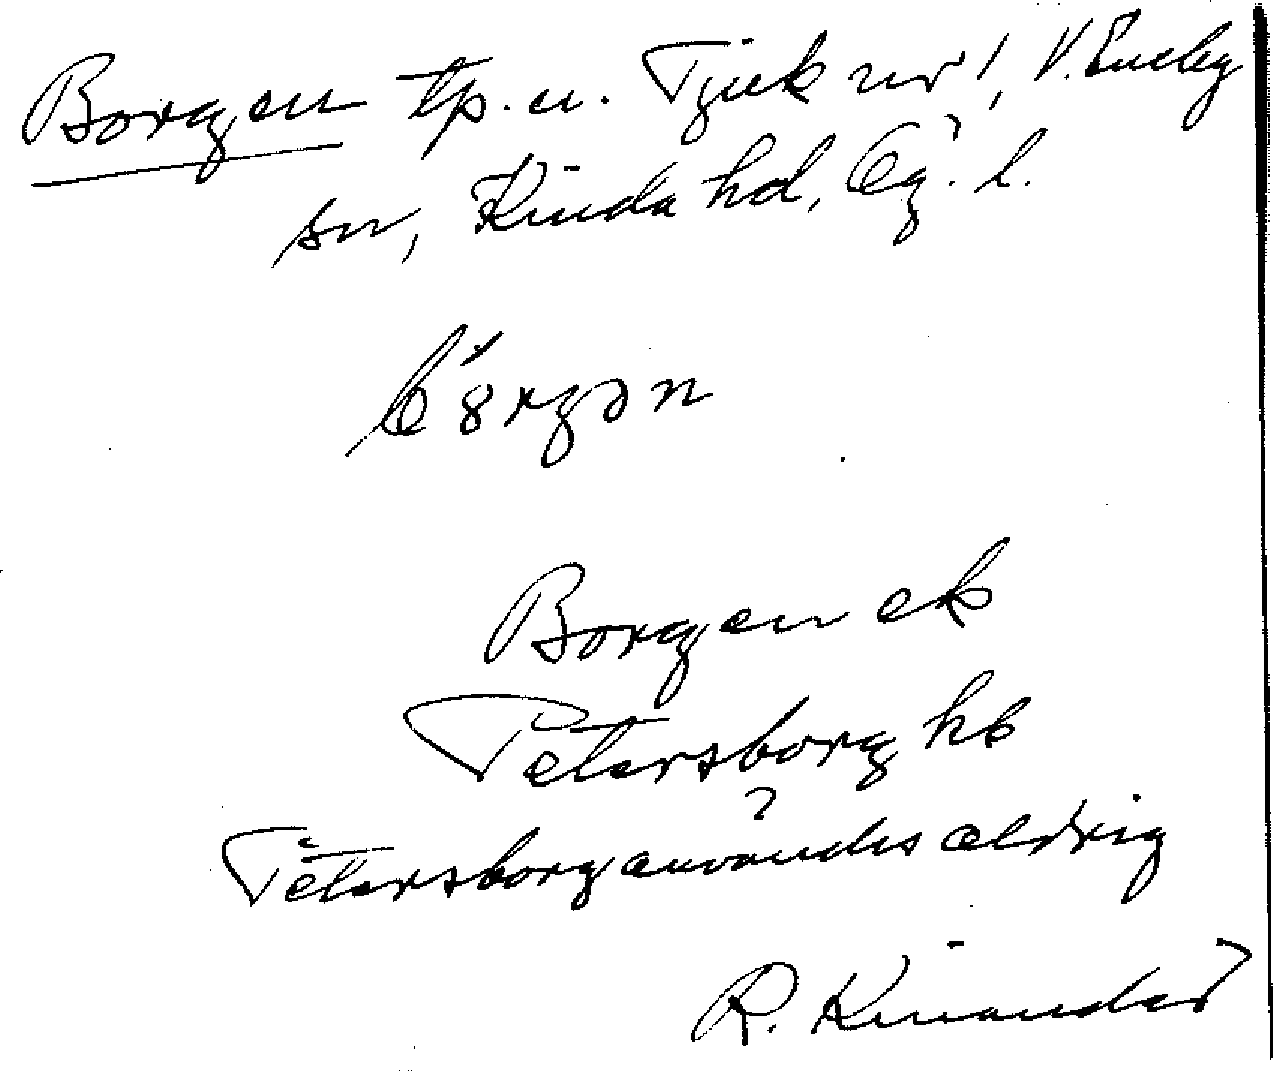 Borgen tp. u. Tjuk nr 1, V. Eneby
sn, Kinda hd, Ög. l.
Borgen ek
Petersborg hb
Petersborg användes aldrig
R. Kinander